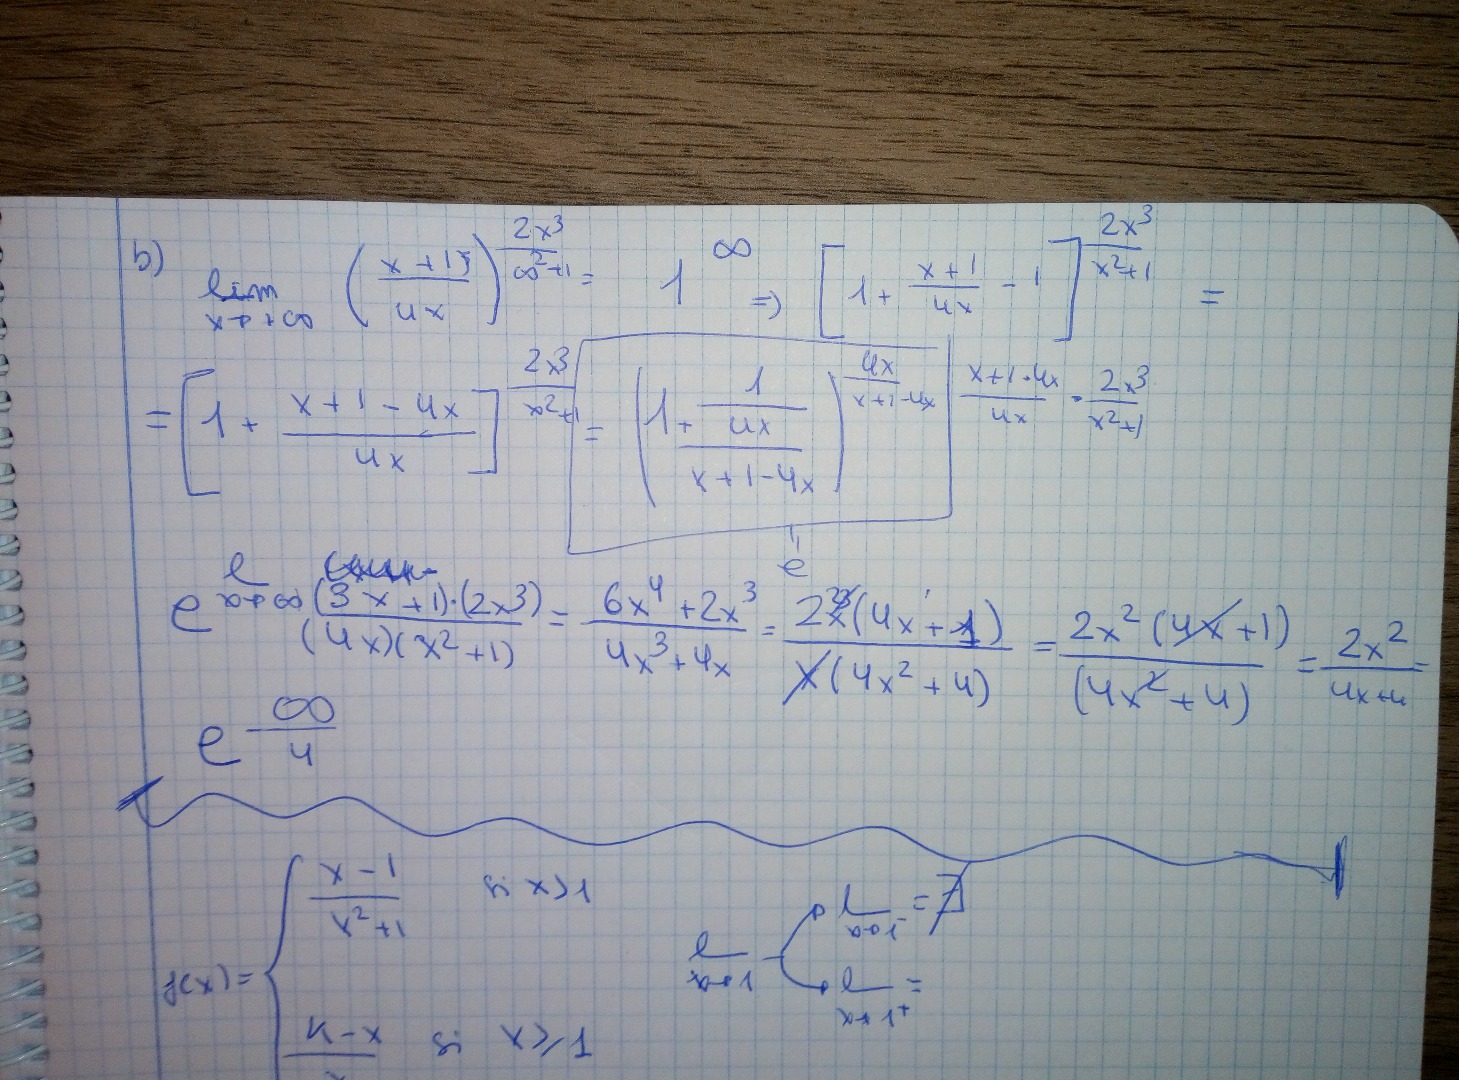 b) lim x→+∞ ((x+15)/4x)^(2x³/(∞²+1)) = 1^∞ => [1 + (x+1)/4x - 1]^(2x³/(x²+1)) =
= [1 + (x+1-4x)/4x]^(2x³/(x²+1)) = (1 + 1/(4x/(x+1-4x)))^(4x/(x+1-4x) · (x+1-4x)/4x · 2x³/(x²+1))
e
e^(l x→∞ (3x+1)·(2x³)/((4x)(x²+1))) = (6x⁴+2x³)/(4x³+4x) = 2x³(4x+1)/(x(4x²+4)) = 2x²(4x+1)/(4x²+4) = 2x²/(4x+4) =
e^(∞/4)
f(x) = { (x-1)/(x²+1) si x>1
l x→1 → l x→1⁻ = ∄
→ l x→1⁺ =
k-x si x≥1